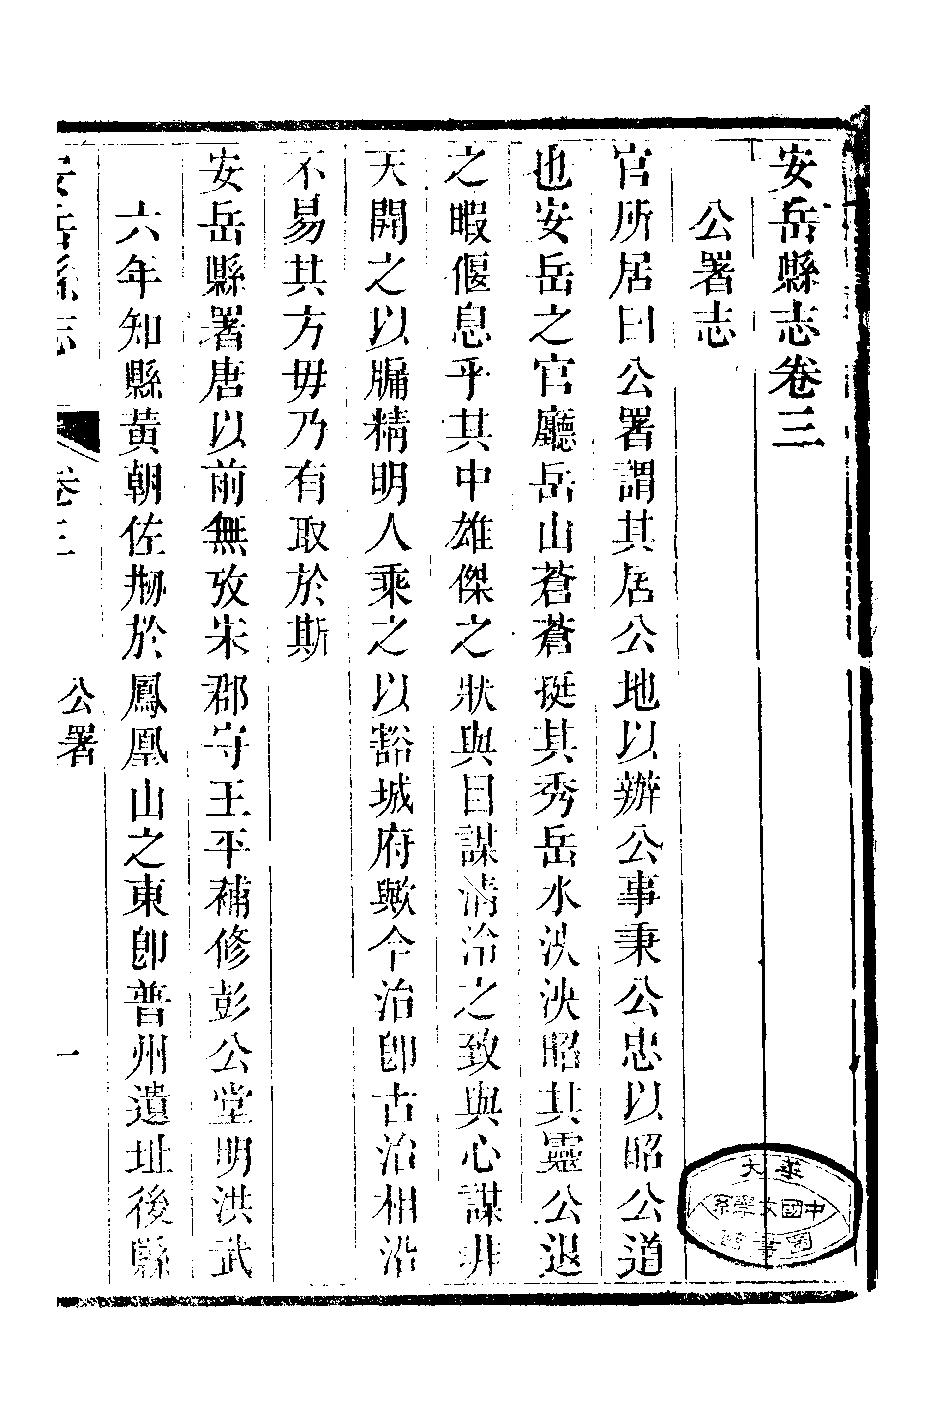 安岳縣志卷三
公署志
官所居曰公署謂其居公地以辦公事秉公忠以昭公道
也安岳之官廳岳山蒼蒼挺其秀岳水泱泱昭其靈公退
之暇偃息乎其中雄傑之狀與目謀清泠之致與心謀井
天開之以牖精明人乘之以豁城府歟今治卽古治相沿
不易其方毋乃有取於斯
安岳縣署唐以前無攷宋郡守王平補修彭公堂明洪武
六年知縣黃朝佐剏於鳳凰山之東卽普州遺址後縣
安岳縣志
卷三
公署
一
華大
中國文學系
圖書館